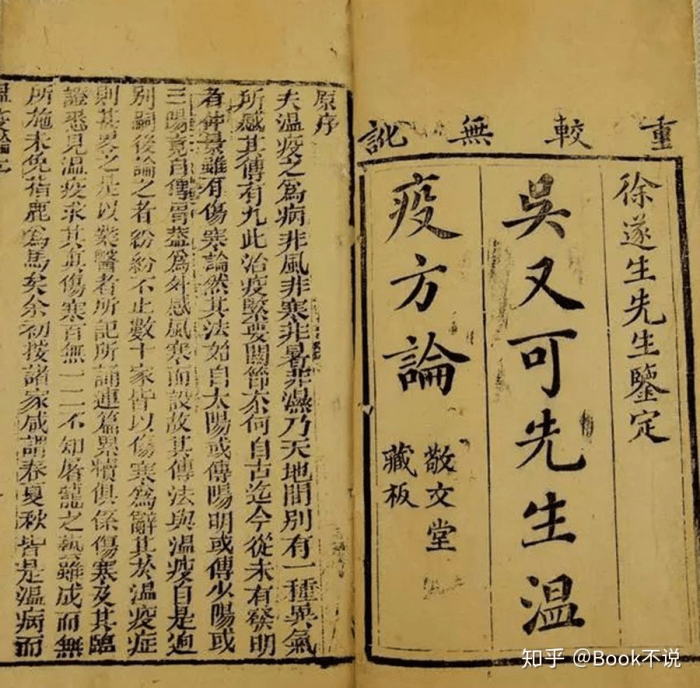 重較無訛
徐遂生先生鑒定
吳又可先生溫
疫方論
敬文堂
藏板
原序
夫溫疫之爲病非風非寒非暑非濕乃天地間別有一種異氣
所感其傳有九此治疫緊要關節奈何自古迄今從未有發明
者仲景雖有傷寒論然其法始自太陽或傳陽明或傳少陽或
三陽竟自傳胃葢爲外感風寒而設故其傳法與溫疫自是迥
別嗣後論之者紛紛不止數十家皆以傷寒爲辭其於溫疫症
則甚畧之是以業醫者所記所誦連篇累牘俱係傷寒及其臨
證悉見溫疫求其真傷寒百無一二不知屠龍之藝雖成而無
所施未免指鹿爲馬矣余初按諸家咸謂春夏秋皆是溫病而
知乎 @Book不说